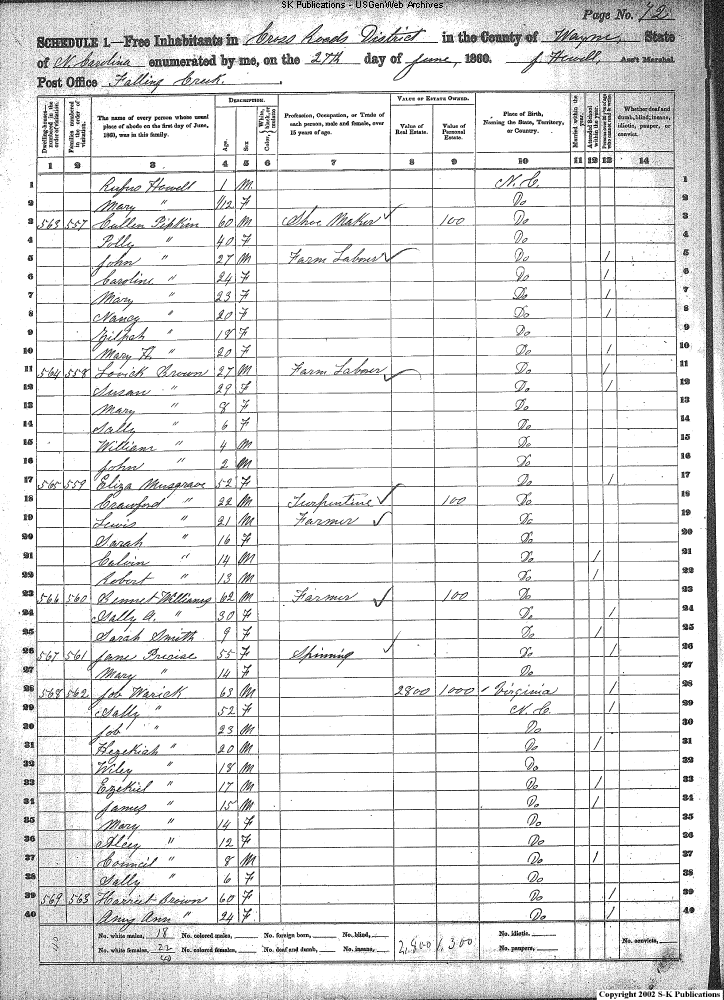 SK Publications - USGenWeb Archives
Page No. 72
SCHEDULE 1.—Free Inhabitants in Cross Roads District in the County of Wayne, State
of N. Carolina enumerated by me, on the 27th day of June, 1860. J. Howell, Ass't Marshal.
Post Office Falling Creek.
DESCRIPTION. VALUE OF ESTATE OWNED.
Dwelling-houses numbered in the order of visitation. Families numbered in the order of visitation. The name of every person whose usual place of abode on the first day of June, 1860, was in this family. Age. Sex. Color, White, black, or mulatto. Profession, Occupation, or Trade of each person, male and female, over 15 years of age. Value of Real Estate. Value of Personal Estate. Place of Birth, Naming the State, Territory, or Country. Married within the year. Attended School within the year. Whether deaf and dumb, blind, insane, idiotic, pauper, or convict.
1 2 3 4 5 6 7 8 9 10 11 12 13 14
1 Rufus Howell 1 M N. C. 1
2 Mary " 1/12 F Do 2
3 563 557 Cullen Pipkin 60 M Shoe Maker ✓ 100 Do 3
4 Polly " 40 F Do 4
5 John " 27 M Farm Labour ✓ Do / 5
6 Caroline " 24 F Do / 6
7 Mary " 23 F Do / 7
8 Nancy " 20 F Do / 8
9 Zilpah " 18 F Do 9
10 Mary H. " 20 F Do / 10
11 564 558 Lovick Brown 27 M Farm Labour ✓ Do / 11
12 Susan " 29 F Do / 12
13 Mary " 8 F Do 13
14 Sally " 6 F Do 14
15 William " 4 M Do 15
16 John " 2 M Do 16
17 565 559 Eliza Musgrave 52 F Do / 17
18 Crawford " 22 M Turpentine ✓ 100 Do 18
19 Lewis " 21 M Farmer ✓ Do 19
20 Sarah " 16 F Do 20
21 Calvin " 14 M Do / 21
22 Robert " 13 M Do / 22
23 566 560 Bennet Williams 62 M Farmer ✓ 100 Do 23
24 Sally A. " 30 F Do / 24
25 Sarah Smith 9 F Do / 25
26 567 561 Jane Precise 55 F Spinning ✓ Do / 26
27 Mary " 14 F Do 27
28 568 562 Job Warick 63 M 2800 1000 Virginia / 28
29 Sally " 52 F N. C. / 29
30 Job " 23 M Do 30
31 Hezekiah " 20 M Do / 31
32 Wiley " 18 M Do 32
33 Ezekiel " 17 M Do / 33
34 James " 15 M Do / 34
35 Mary " 14 F Do 35
36 Alcey " 12 F Do 36
37 Council " 8 M Do / 37
38 Sally " 6 F Do 38
39 569 563 Harriet Brown 60 F Do / 39
40 Amy Ann " 24 F Do / 40
No. white males, 18 No. colored males, No. foreign born, No. blind, 2,800 1,300 No. idiotic, No. convicts,
No. white females, 22 No. colored females, No. deaf and dumb, No. insane, No. paupers,
40
Copyright 2002 S-K Publications